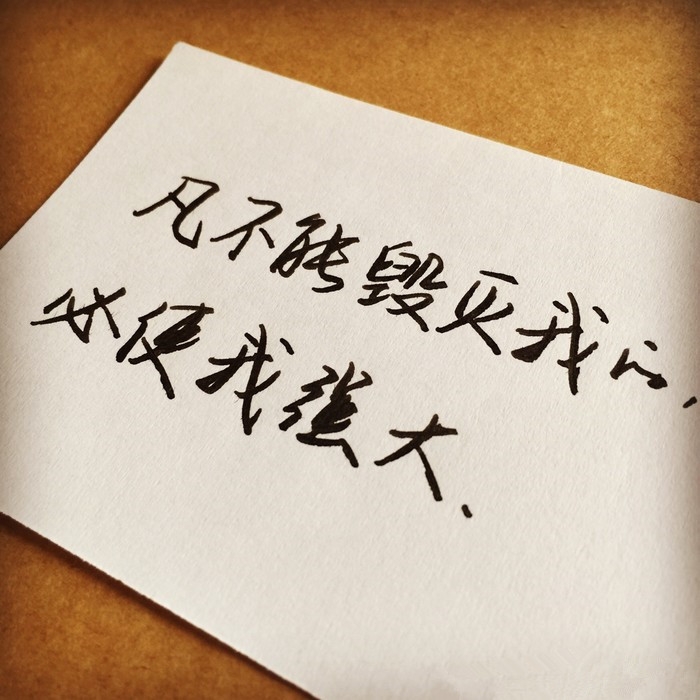 凡不能毁灭我的,
必使我强大.